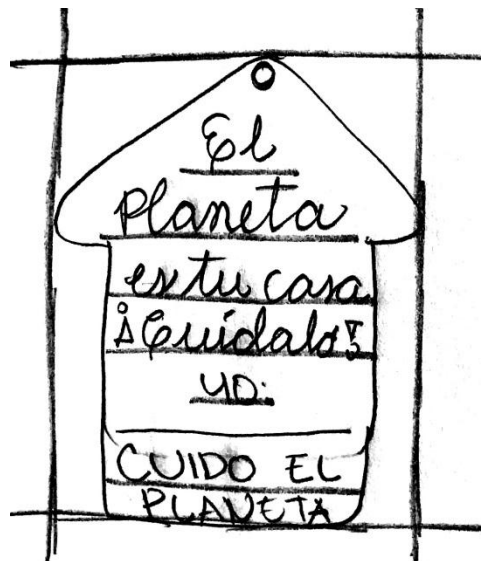 El
Planeta
es tu casa.
¡Cuídalo!
YO:
CUIDO EL
PLANETA